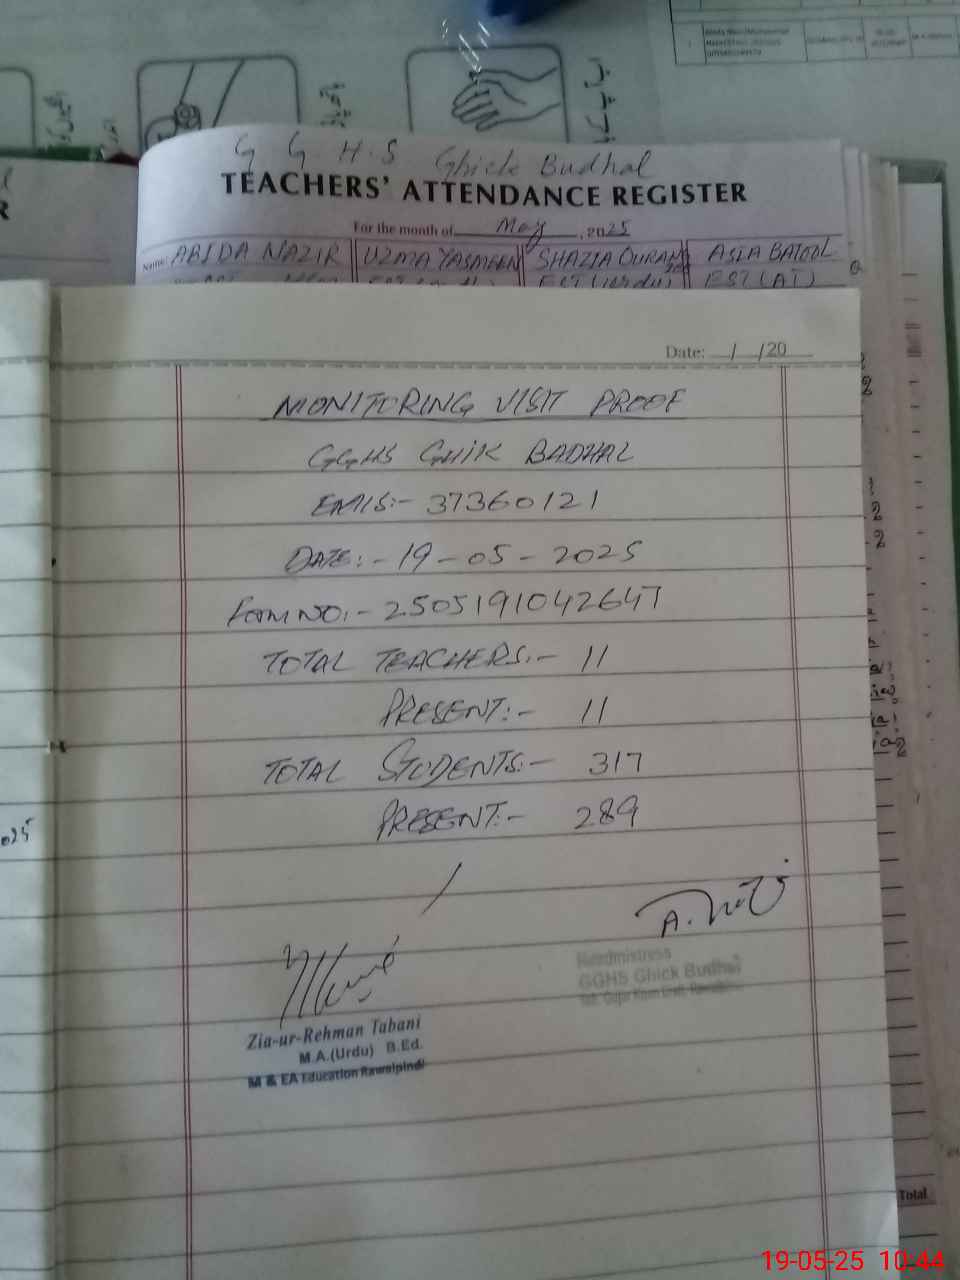 G G.H.S Ghick Budhal
TEACHERS' ATTENDANCE REGISTER
For the month of May, 2025
Name: ABIDA NAZIR UZMA YASMEEN SHAZIA ASIA BATOOL
EST (AT)
Date: / /20
MONITORING VISIT PROOF
GGHS GHIK BADHAL
EMIS:- 37360121
DATE:- 19-05-2025
FORM NO:- 2505191042647
TOTAL TEACHERS:- 11
PRESENT:- 11
TOTAL STUDENTS:- 317
PRESENT:- 289
Headmistress
GGHS Ghick Budhal
Zia-ur-Rehman Tabani
M.A.(Urdu) B.Ed.
M & EA Education Rawalpindi
Total
19-05-25 10:44